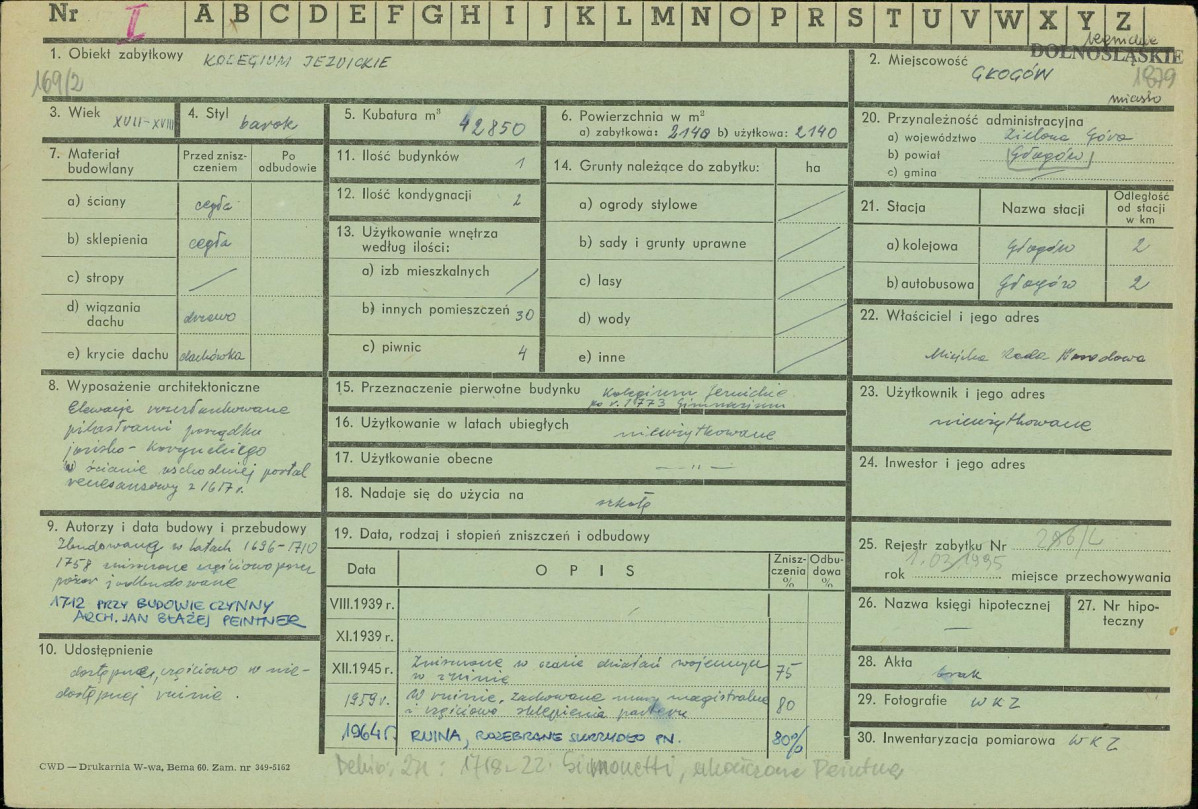 Nr I A B C D E F G H I J K L M N O P R S T U V W X Y Z
legnickie
DOLNOŚLĄSKIE
1. Obiekt zabytkowy KOLEGIUM JEZUICKIE
169/2
2. Miejscowość GŁOGÓW
1879
miasto
3. Wiek XVII-XVIII
4. Styl barok
5. Kubatura m³ 42850
6. Powierzchnia w m²
a) zabytkowa: 2140 b) użytkowa: 2140
20. Przynależność administracyjna
a) województwo Zielona Góra
b) powiat Głogów
c) gmina
7. Materiał budowlany
Przed zniszczeniem
Po odbudowie
a) ściany cegła
b) sklepienia cegła
c) stropy
d) wiązania dachu drzewo
e) krycie dachu dachówka
11. Ilość budynków 1
12. Ilość kondygnacji 2
13. Użytkowanie wnętrza
według ilości:
a) izb mieszkalnych
b) innych pomieszczeń 30
c) piwnic 4
14. Grunty należące do zabytku: ha
a) ogrody stylowe
b) sady i grunty uprawne
c) lasy
d) wody
e) inne
21. Stacja
Nazwa stacji
Odległość
od stacji
w km
a) kolejowa Głogów 2
b) autobusowa Głogów 2
22. Właściciel i jego adres
Miejska Rada Narodowa
8. Wyposażenie architektoniczne
Elewacje rozczłonkowane
pilastrami porządku
jońsko-korynckiego
W ścianie wschodniej portal
renesansowy z 1617 r.
15. Przeznaczenie pierwotne budynku Kolegium Jezuickie
po r. 1773 Gimnazjum
16. Użytkowanie w latach ubiegłych nieużytkowane
17. Użytkowanie obecne — " —
18. Nadaje się do użycia na szkołę
23. Użytkownik i jego adres
nieużytkowane
24. Inwestor i jego adres
9. Autorzy i data budowy i przebudowy
Zbudowane w latach 1696-1710
1758 zniszczone częściowo przez
pożar i odbudowane
1712 PRZY BUDOWIE CZYNNY
ARCH. JAN BŁAŻEJ PEINTNER
10. Udostępnienie
dostępne, częściowo w nie-
dostępnej ruinie.
19. Data, rodzaj i stopień zniszczeń i odbudowy
Data
OPIS
Zniszczenia %
Odbudowa %
VIII.1939 r.
XI.1939 r.
XII.1945 r. Zniszczone w czasie działań wojennych
w ruinie 75
1959 r. W ruinie, zachowane mury magistralne
i częściowo sklepienia parteru 80
1964 r. RUINA, ROZEBRANE SKRZYDŁO PN. 80%
25. Rejestr zabytku Nr
rok 1.02.1995 miejsce przechowywania
26. Nazwa księgi hipotecznej —
27. Nr hipoteczny
28. Akta brak
29. Fotografie WKZ
30. Inwentaryzacja pomiarowa WKZ
CWD — Drukarnia W-wa, Bema 60. Zam. nr 349-5162
Dehio, 1718-22. Simonetti, ukończone Peintner